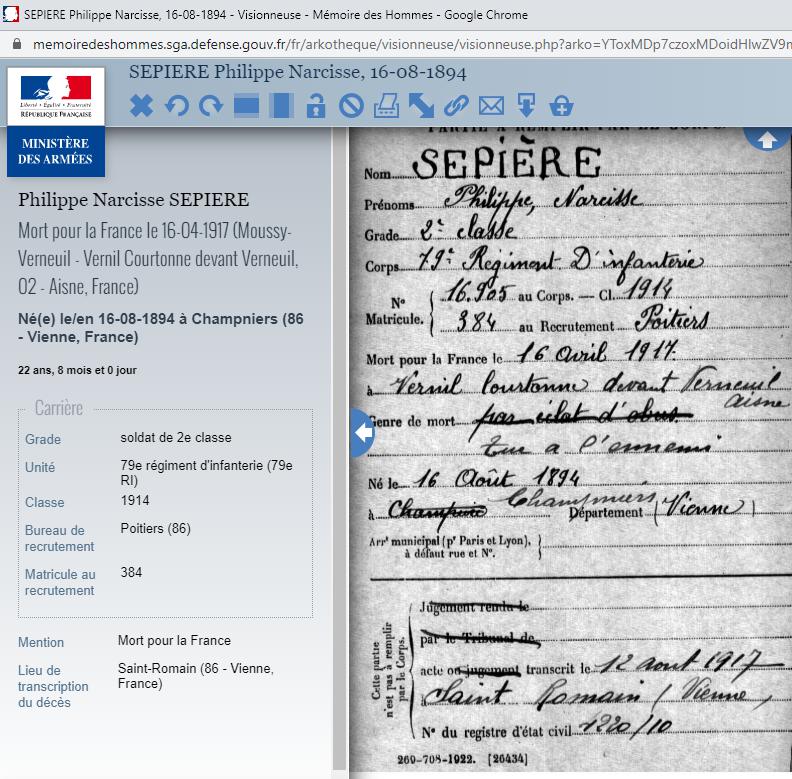 SEPIERE Philippe Narcisse, 16-08-1894 - Visionneuse - Mémoire des Hommes - Google Chrome
memoiredeshommes.sga.defense.gouv.fr/fr/arkotheque/visionneuse/visionneuse.php?arko=YToxMDp7czoxMDoidHlwZV9m
SEPIERE Philippe Narcisse, 16-08-1894
Liberté • Égalité • Fraternité
RÉPUBLIQUE FRANÇAISE
MINISTÈRE
DES ARMÉES
Philippe Narcisse SEPIERE
Mort pour la France le 16-04-1917 (Moussy-
Verneuil - Vernil Courtonne devant Verneuil,
02 - Aisne, France)
Né(e) le/en 16-08-1894 à Champniers (86
- Vienne, France)
22 ans, 8 mois et 0 jour
Carrière
Grade soldat de 2e classe
Unité 79e régiment d'infanterie (79e
RI)
Classe 1914
Bureau de Poitiers (86)
recrutement
Matricule au 384
recrutement
Mention Mort pour la France
Lieu de Saint-Romain (86 - Vienne,
transcription France)
du décès
PARTIE A REMPLIR PAR LE CORPS.
Nom SEPIÈRE
Prénoms Philippe, Narcisse
Grade 2e classe
Corps 79e Regiment D'infanterie
N° 16.905 au Corps. — Cl. 1914
Matricule. 384 au Recrutement Poitiers
Mort pour la France le 16 avril 1917.
à Vernil Courtonne devant Verneuil
aisne
Genre de mort par éclat d'obus
Tué a l'ennemi
Né le 16 Août 1894
à Champniers Département (Vienne)
Arrt municipal (pr Paris et Lyon),
à défaut rue et N°.
Cette partie
n'est pas à remplir
par le Corps.
Jugement rendu le
par le Tribunal de
acte ou jugement transcrit le 12 aout 1917
à Saint Romain (Vienne)
N° du registre d'état civil 1220/10
269-708-1922. [26434]